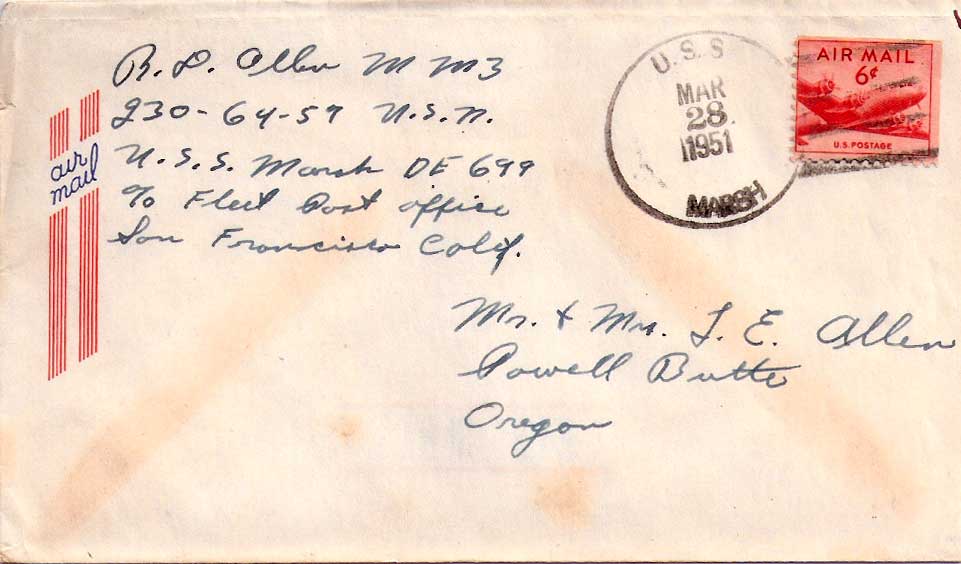 R. L. Allen M M3
230-64-59 U.S.N.
U.S.S. Marsh DE 699
% Fleet Post office
San Francisco Calif.
air
mail
U.S.S
MAR
28
1951
MARSH
AIR MAIL
6¢
U.S. POSTAGE
Mr. & Mrs. L. E. Allen
Powell Butte
Oregon